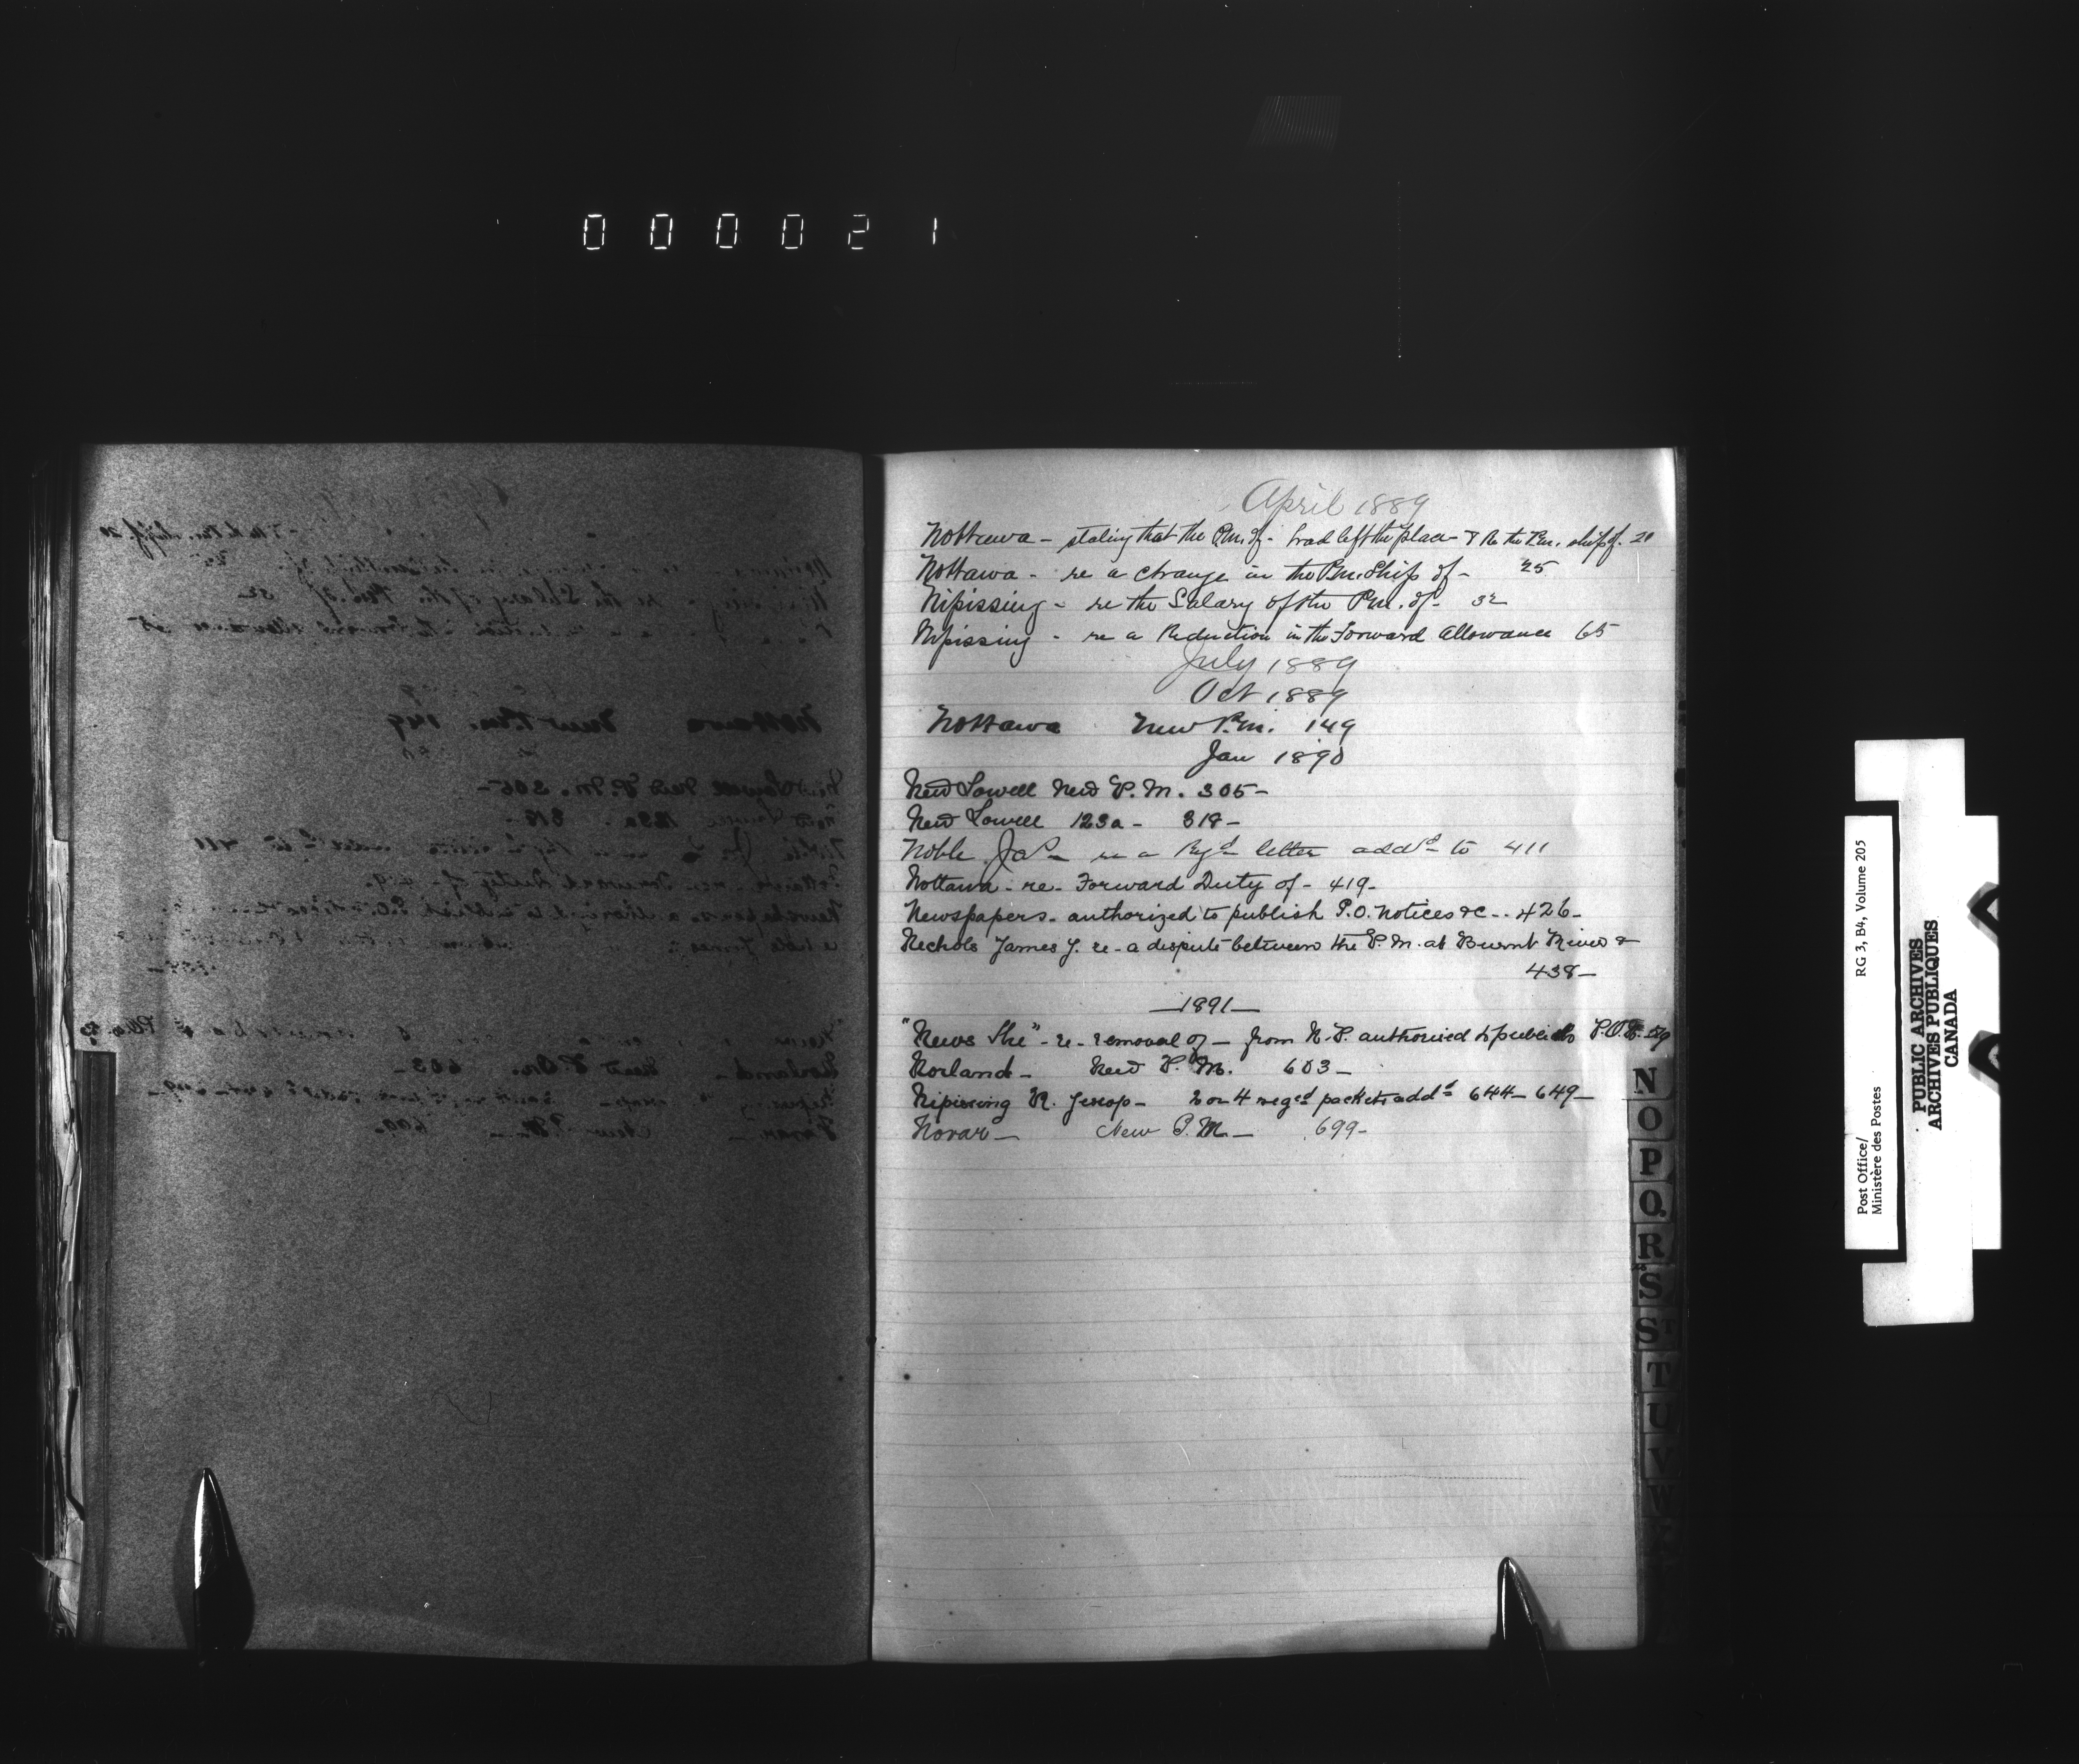 000021
April 1889
Nottawa - stating that the P.m. of - had left the place - & re the P.m. ship of. 20
Nottawa - re a change in the P.m. Ship of - 25
Nipissing - re the Salary of the P.m. of - 32
Nipissing - re a Reduction in the Forward Allowance 65
July 1889
Oct 1889
Nottawa New P.M. 149
Jan 1890
New Lowell New P.M. 305-
New Lowell 123a - 318-
Noble Jas - re a Rgd letter addd to 411
Nottawa - re - Forward Duty of - 419-
Newspapers - authorized to publish P.O. notices &c - - 426-
Nichols James J. re - a dispute between the P.M. at Burnt River &
438-
-1891-
"News The" - re - removal of - from N.P. authorized to publish
Norland - New P.M. 603-
Nipissing R. Jessop - 2 or 4 regd packets addd 644- 649-
Novar- New P.M.- 699-
N
O
P
Q
R
S
S T
T
U
V
W
Post Office/ RG 3, B4, Volume 205
Ministère des Postes
PUBLIC ARCHIVES
ARCHIVES PUBLIQUES
CANADA